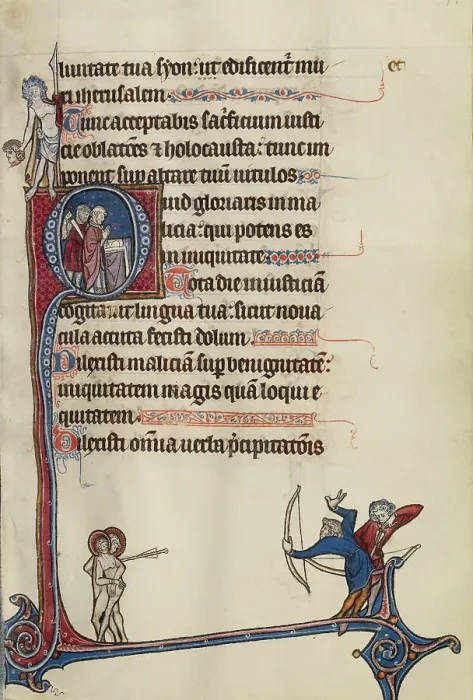 luntate tua syon: ut edificent᷑ mu et
ri iherusalem.
Tunc acceptabis sac̃ficium iusti
cie oblatões ⁊ holocausta: tunc im
ponent sup altare tuũ uitulos
Quid gloriaris in ma
licia: qui potens es
in iniquitate
Tota die iniusticiã
cogitauit lingua tua: sicut noua
cula acuta fecisti dolum.
Dilexisti maliciã sup benignitatẽ:
iniquitatem magis quã loqui e
quitatem.
Dilexisti om̃ia uerba p̃cipitatõis